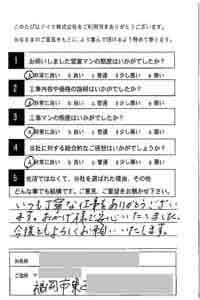 このたびはダイク株式会社をご利用頂きありがとうございます。
みなさまのご意見をもとにより喜んで頂けるよう努めて参ります。
1 お伺いしました営業マンの態度はいかがでしたか？
a 非常に良い b 良い c 普通 d 少し悪い e 悪い
2 工事内容や価格の説明はいかがでしたか？
a 非常に良い b 良い c 普通 d 少し悪い e 悪い
3 工事マンの態度はいかがでしたか？
a 非常に良い b 良い c 普通 d 少し悪い e 悪い
4 当社に対する総合的なご感想はいかがでしょうか？
a 非常に良い b 良い c 普通 d 少し悪い e 悪い
5 他店ではなくて、当社を選ばれた理由、その他
どんな事でも結構です。ご意見、ご要望をお聞かせ下さい。
いつも丁寧な仕事をありがとうござい
ます。おかげ様で安心いたしました。
今後ともよろしくお願いいたします。
お名前
ご住所
福岡市東